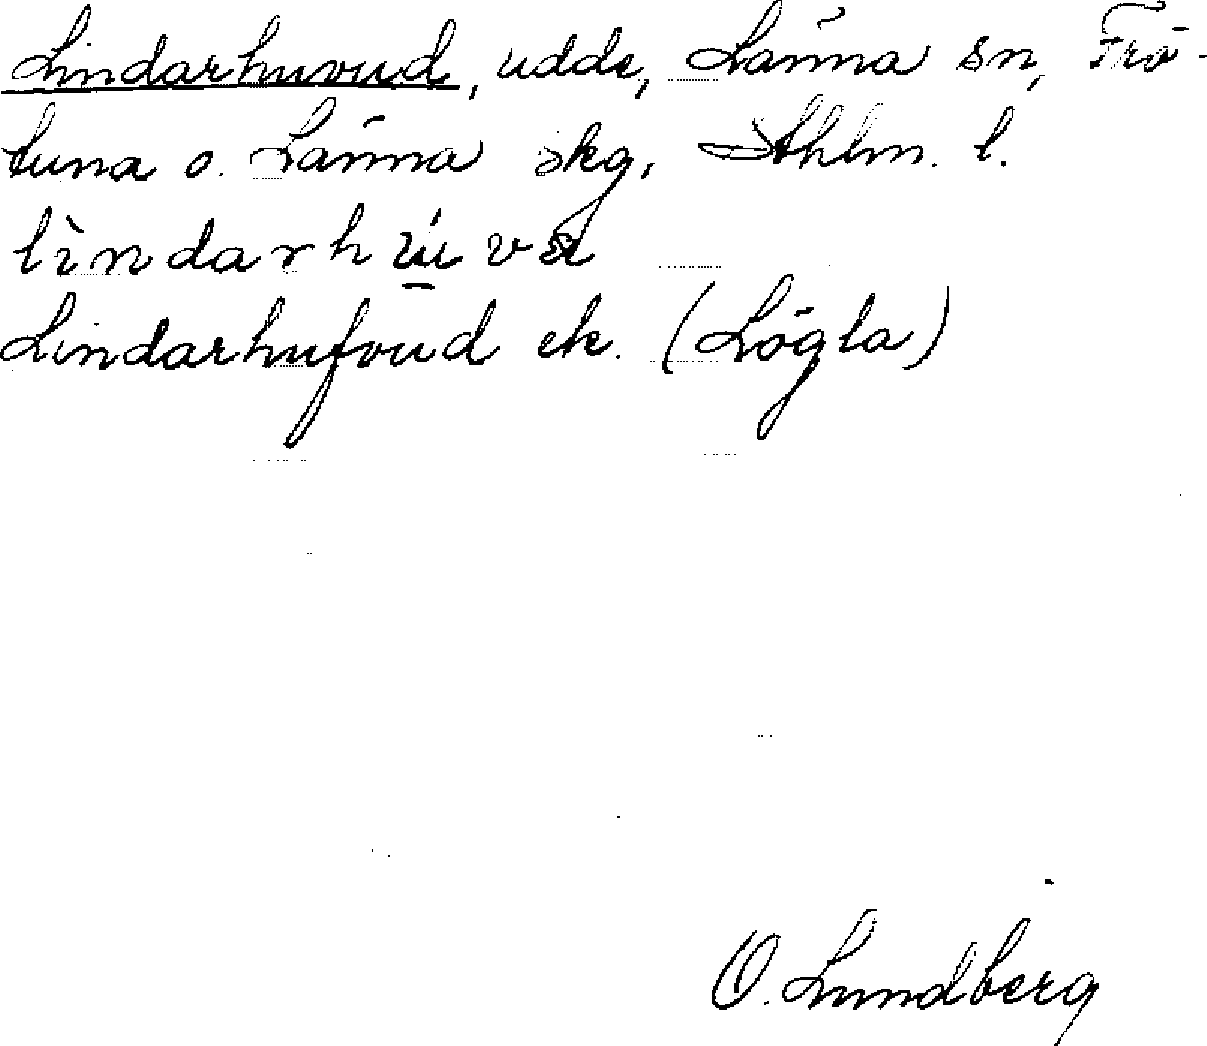 Lindarhuvud, udde, Länna sn, Frö-
tuna o. Länna skg, Sthlm. l.
lìndarhúvu
Lindarhufvud ek. (Lögla)
O. Lundberg